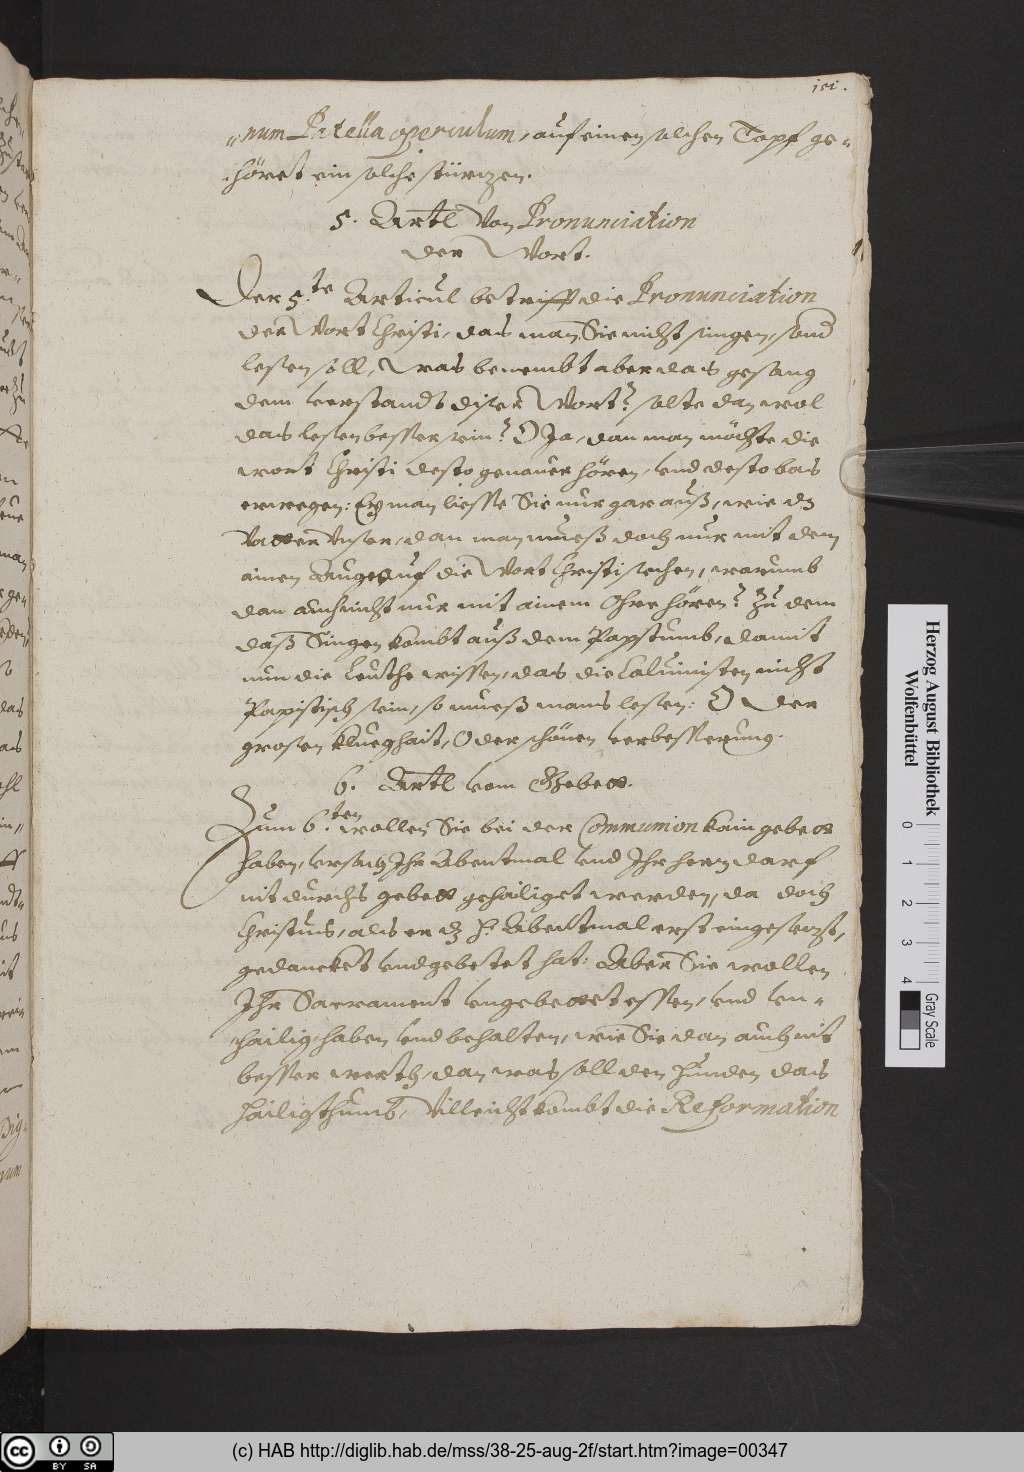 151.
„num Patella operculum, auf einen solchen Topf ge-
höret ein solche stürzen.
5. Artl von Pronunciation
der Wort.
Der 5.te Articul betrifft die Pronunciation
der Wort Christi, das man Sie nicht singen, sond
lesen soll, Was benembt aber das gesang
dem verstandt diser Wort? solte dan wol
das lesen besser sein? O Ja, dan man möchte die
wort Christi desto genauer hören, vnd desto bas
erwegen: Ey man liesse Sie nur gar auß, wie dz
Vatter Vnser, dan man mueß doch nur mit dem
ainen Aug auf die Wort Christi sehen, warumb
dan auch nicht nur mit ainem Ohre hören? Zu dem
daß Singen kombt auß dem Papstumb, damit
nun die Leuthe wissen, das die Caluinisten nicht
Papistisch sein, so mueß mans lesen: O Der
grosen klueghait, O der schönen verbesserung.
6. Artl vom Gebett.
Zum 6.ten wollen Sie bei der Communion kain gebett
haben, vrsach Ihr Abentmal vnd Ihr herz darf
nit durchs gebett gehailiget werden, da doch
Christus, als er dz H. Abentmal erst eingesetzt,
gedancket vnd gebetet hat: Aber Sie wollen
Ihr Sacrament vngebettet essen, vnd vn-
hailig haben vnd behalten, wie Sie dan auch nit
besser werth, dan was soll den Hunden das
Hailigthumb, Villeicht kombt die Reformation
Herzog August Bibliothek
Wolfenbüttel
0 1 2 3 4
Gray Scale
CC BY SA
(c) HAB http://diglib.hab.de/mss/38-25-aug-2f/start.htm?image=00347